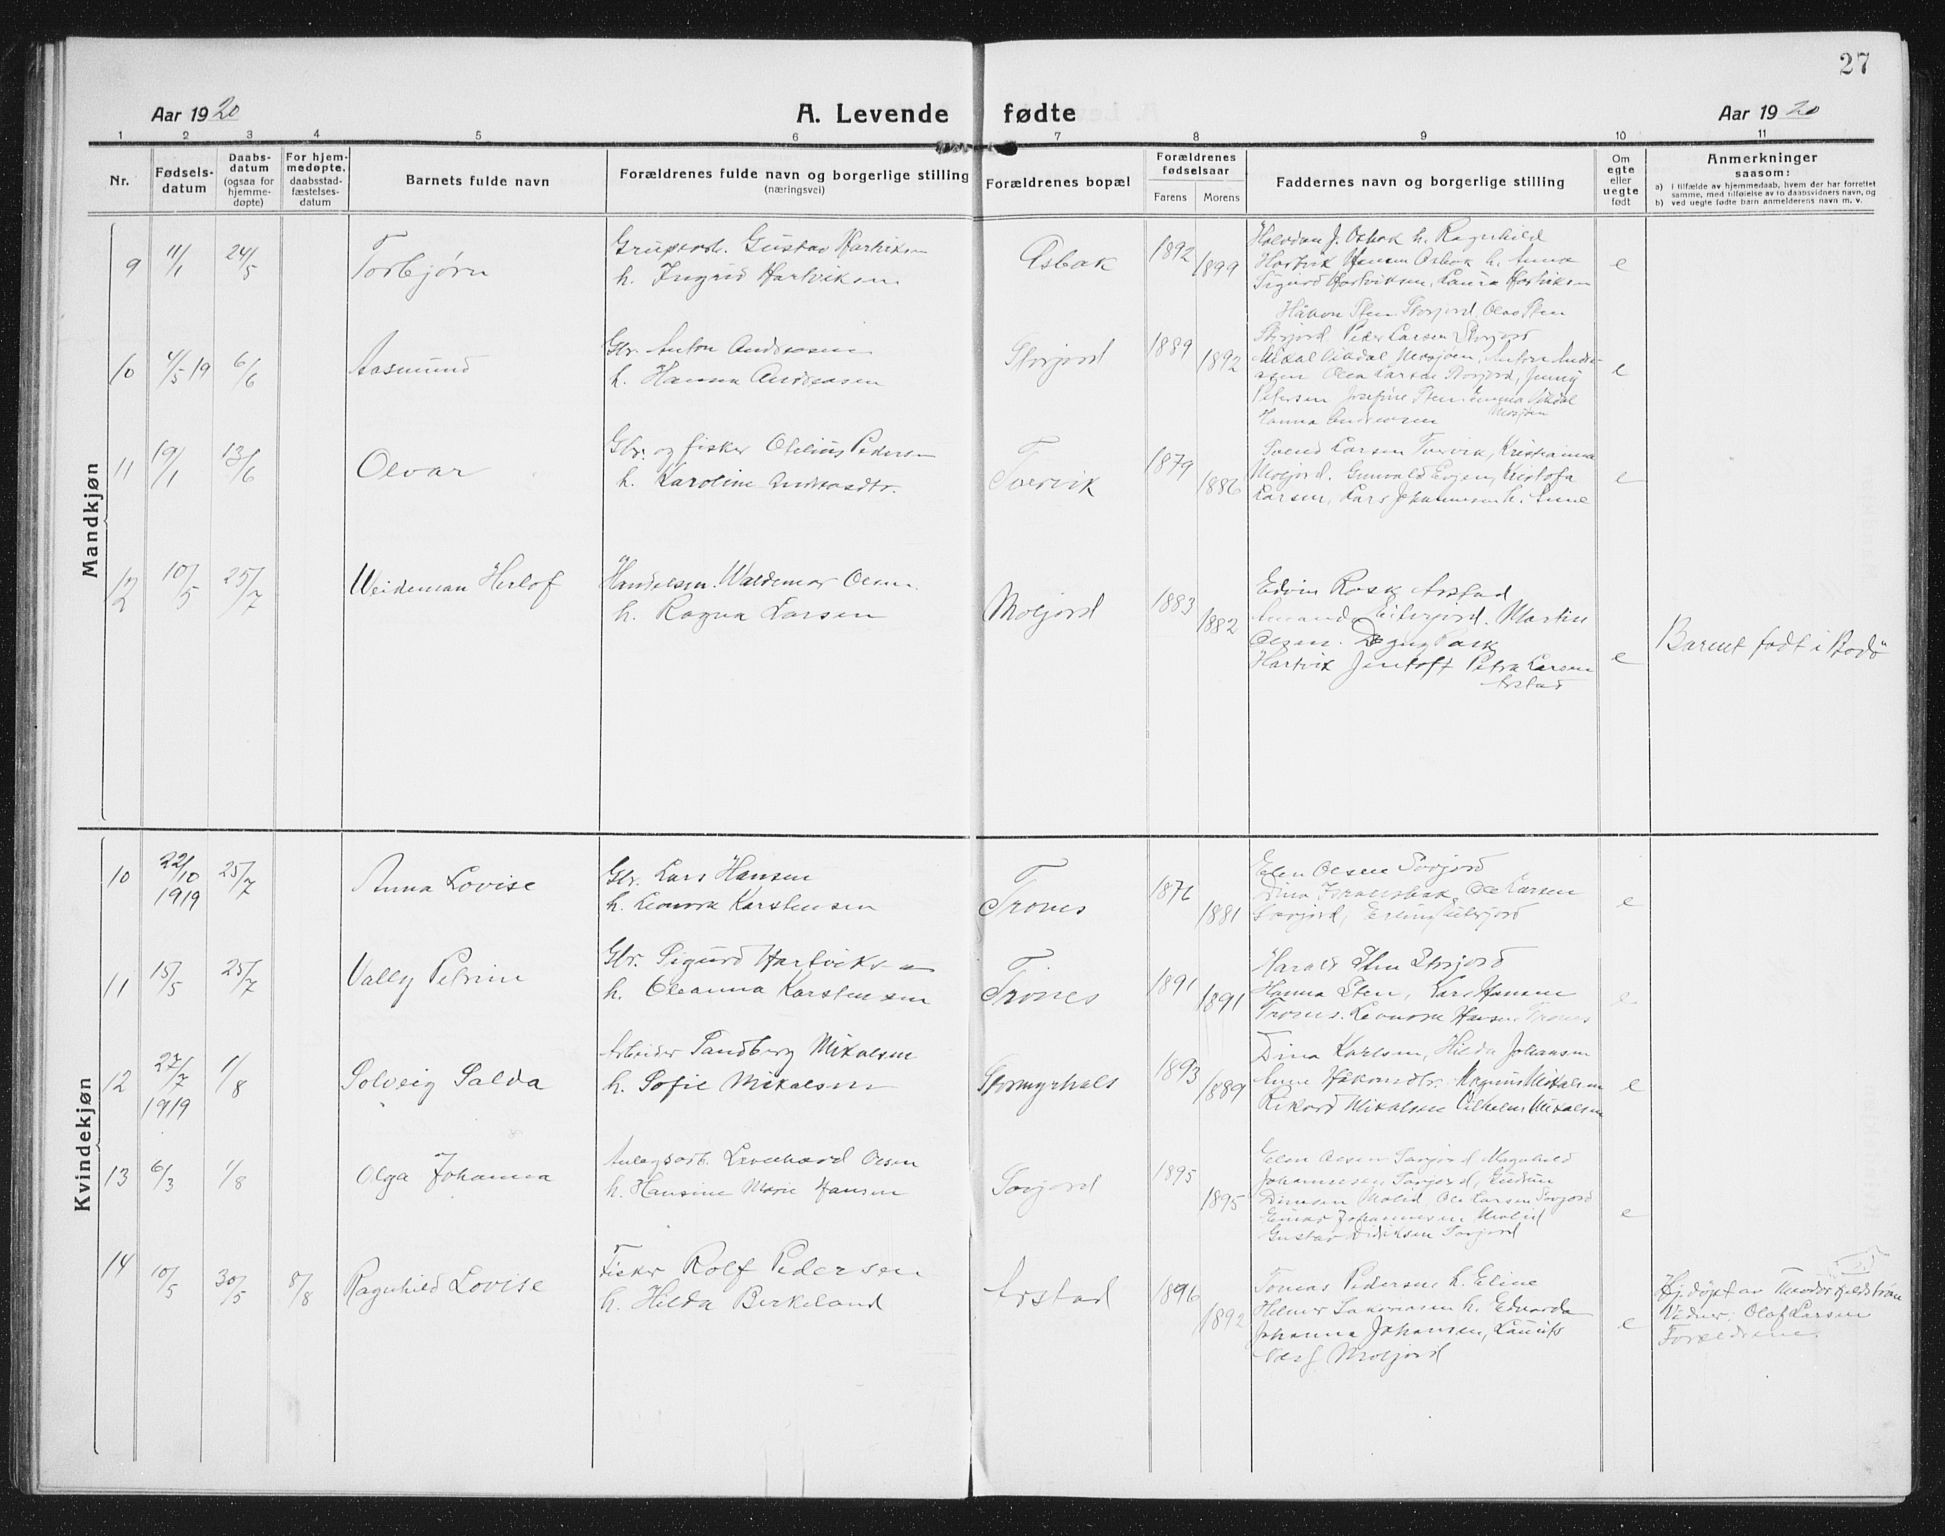 27
Aar 1920
A. Levende fødte
Aar 1920
1 2 3 4 5 6 7 8 9 10 11
Nr.
Fødsels-
datum
Daabs-
datum
(ogsaa for
hjemme-
døpte)
For hjem-
medøpte,
daabsstad-
fæstelses-
datum
Barnets fulde navn
Forældrenes fulde navn og borgerlige stilling
(næringsvei)
Forældrenes bopæl
Forældrenes
fødselsaar
Farens Morens
Faddernes navn og borgerlige stilling
Om
egte
eller
uegte
født
Anmerkninger
saasom:
a) i tilfælde av hjemmedaab, hvem der har forrettet
samme, med tilføielse av to daabsvidners navn, og
b) ved uegte fødte barn anmelderens navn m. v.
Mandkjøn
9 11/1 24/5 Torbjørn
Gustav Hartviksen
h. Ingrid Hartviksen
Osbak 1892 1899
Halvdan J. Osbak h. Ragnhild
Hartvik Hansen Osbak h. Anna
Sigurd Hartviksen, Laura Hartviksen
e
10 4/5 19 6/6 Aasmund
Gbr. Anton Andreasen
h. Hanna Andreasen
Storjord 1889 1892
Håkon Sten Storjord, Olav Sten
Storjord Peder Larsen Storjord
Mosjøen, Anton Andre-
asen Larsen Storjord, Jenny
Petersen Josefine Sten
Mosjøen
Hanna Andreasen
e
11 19/1 13/6 Olvar
Gbr. og fisker Otelius Pedersen
h. Karoline Andreasdtr.
Tvervik 1879 1886
Svend Larsen Tvervik, Kristianna
Moljord. Gunvald Evjen, Kristofa
Larsen, Lars Johannesen h. Anne
e
12 10/5 25/7 Weideman Herlof
Handelsm. Waldemar Olsen
h. Ragna Larsen
Moljord 1883 1882
Edvin Rosk Arstad
Amanda Eiterjord. Martin
Olsen. Dagny Rask
Hartvik Jentoft Petra Larsen
Arstad
e
Barnet født i Bodø
Kvindekjøn
10 22/10 1919 25/7 Anna Lovise
Gbr. Lars Hansen
h. Leonora Karstensen
Trones 1876 1881
Elen Olsen Sorjord
Dina Ole Larsen
Sorjord, Erling Eiterjord
e
11 15/5 25/7 Vally Petrine
Gbr. Sigurd Hartviksen
h. Oleanna Karstensen
Trones 1891 1891
Harald Sten Storjord
Hanna Sten, Lars Hansen
Trones. Leonora Hansen Trones
e
12 27/7 1919 1/8 Solveig Salda
Arbeider Sandberg Mikalsen
h. Sofie Mikalsen
Stormyrhals 1893 1889
Dina Karlsen, Hilda Johansen
Anne Håkonsdtr. Magnus Mikalsen
Rikard Mikalsen Vilhelm Mikalsen
e
13 6/3 1/8 Olga Johanna
Anlegsarb. Levenhard Olsen
h. Hansine Marie Hansen
Sorjord 1895 1895
Elen Olsen Sorjord Magnhild
Johannesen Sorjord, Gudrun
Ole Larsen Sorjord
Einar Johannesen
Gustav Didriksen Sorjord
e
14 10/5 30/5 8/8 Ragnhild Lovise
Fisker Rolf Pedersen
h. Hilda Birkeland
Arstad 1896 1892
Tomas Pedersen h. Eline
Helmer h. Edvarda
Johanna Johansen, Laurits
Moljord
e
Hj.døpt av Teodor
Vidner: Olaf Larsen
Foreldrene.